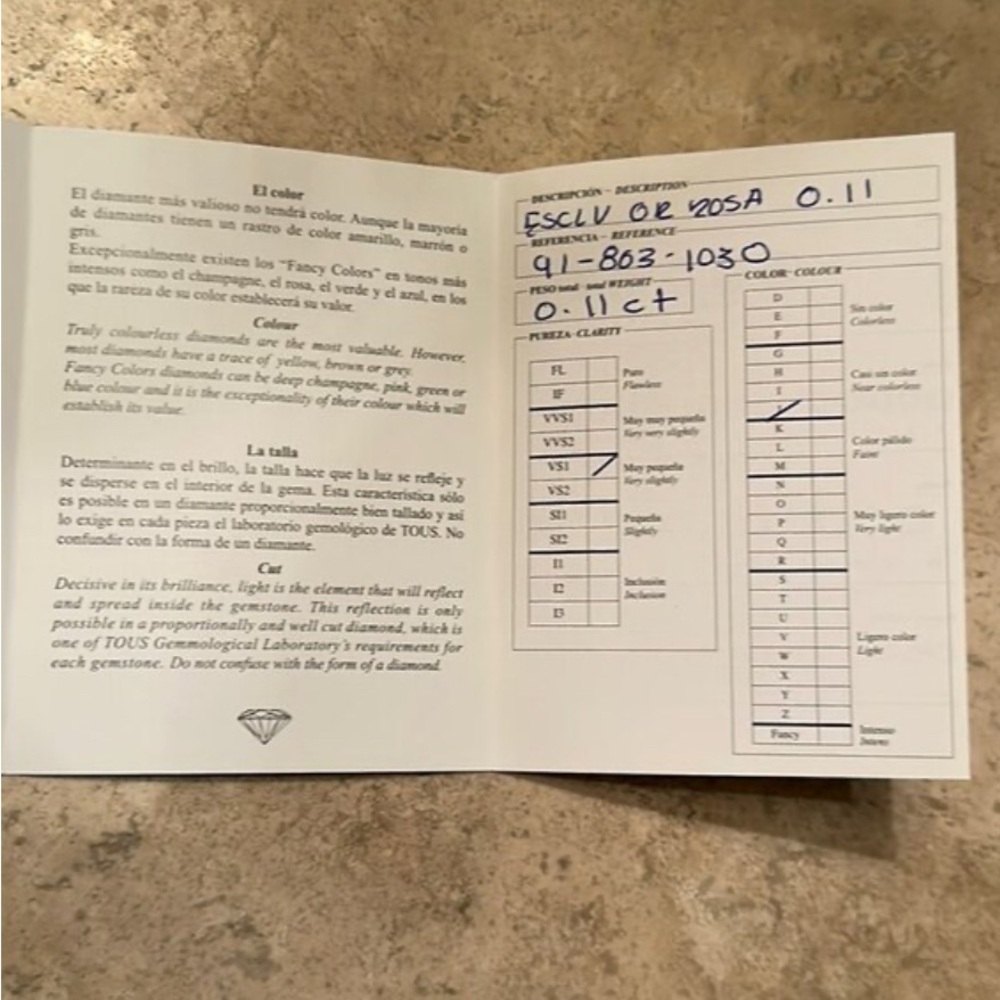 El color
El diamante más valioso no tendrá color. Aunque la mayoría
de diamantes tienen un rastro de color amarillo, marrón o
gris.
Excepcionalmente existen los "Fancy Colors" en tonos más
intensos como el champagne, el rosa, el verde y el azul, en los
que la rareza de su color establecerá su valor.
Colour
Truly colourless diamonds are the most valuable. However,
most diamonds have a trace of yellow, brown or grey.
Fancy Colors diamonds can be deep champagne, pink, green or
blue colour and it is the exceptionality of their colour which will
establish its value.
La talla
Determinante en el brillo, la talla hace que la luz se refleje y
se disperse en el interior de la gema. Esta característica sólo
es posible en un diamante proporcionalmente bien tallado y así
lo exige en cada pieza el laboratorio gemológico de TOUS. No
confundir con la forma de un diamante.
Cut
Decisive in its brilliance, light is the element that will reflect
and spread inside the gemstone. This reflection is only
possible in a proportionally and well cut diamond, which is
one of TOUS Gemmological Laboratory's requirements for
each gemstone. Do not confuse with the form of a diamond.
DESCRIPCIÓN - DESCRIPTION
ESCLV OR ROSA 0.11
REFERENCIA - REFERENCE
91-863-1030
PESO total - total WEIGHT
0.11 ct
PUREZA - CLARITY
FL
IF
Puro
Flawless
VVS1
VVS2
Muy muy pequeña
Very very slightly
VS1
VS2
Muy pequeña
Very slightly
SI1
SI2
Pequeña
Slightly
I1
I2
I3
Inclusión
Inclusion
COLOR - COLOUR
D
E
F
Sin color
Colorless
G
H
I
Casi sin color
Near colorless
K
L
M
Color pálido
Faint
N
O
P
Q
R
Muy ligero color
Very light
S
T
U
V
W
X
Y
Z
Ligero color
Light
Fancy
Intenso
Intens